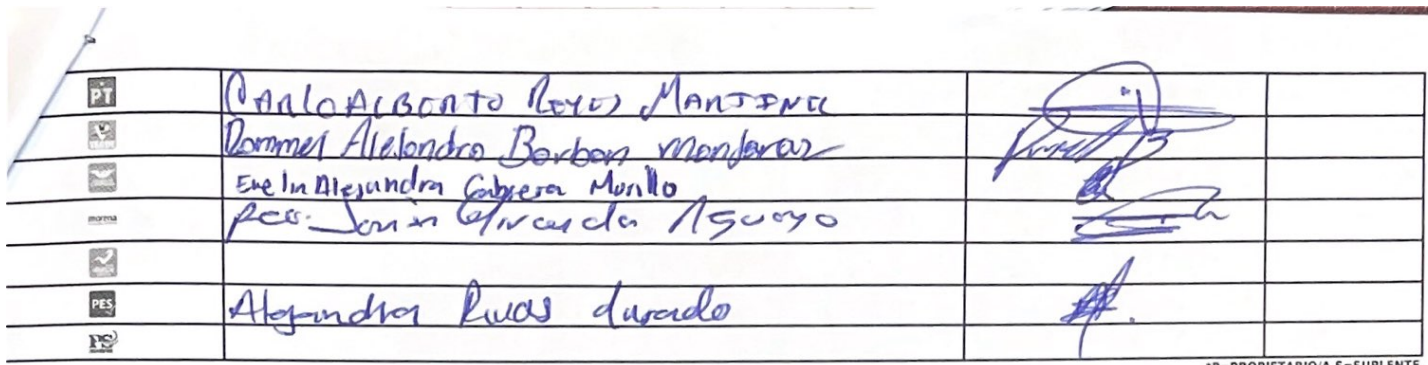 PT CARLO ALBERTO REYES MARTINEZ
VERDE Rommel Alejandro Borbon Monjaraz
Evelin Alejandra Cabrera Murillo
morena Fco. Javier Miranda Aguayo
PES Alejandra Rivas durado
PS
P=PROPIETARIO/A S=SUPLENTE